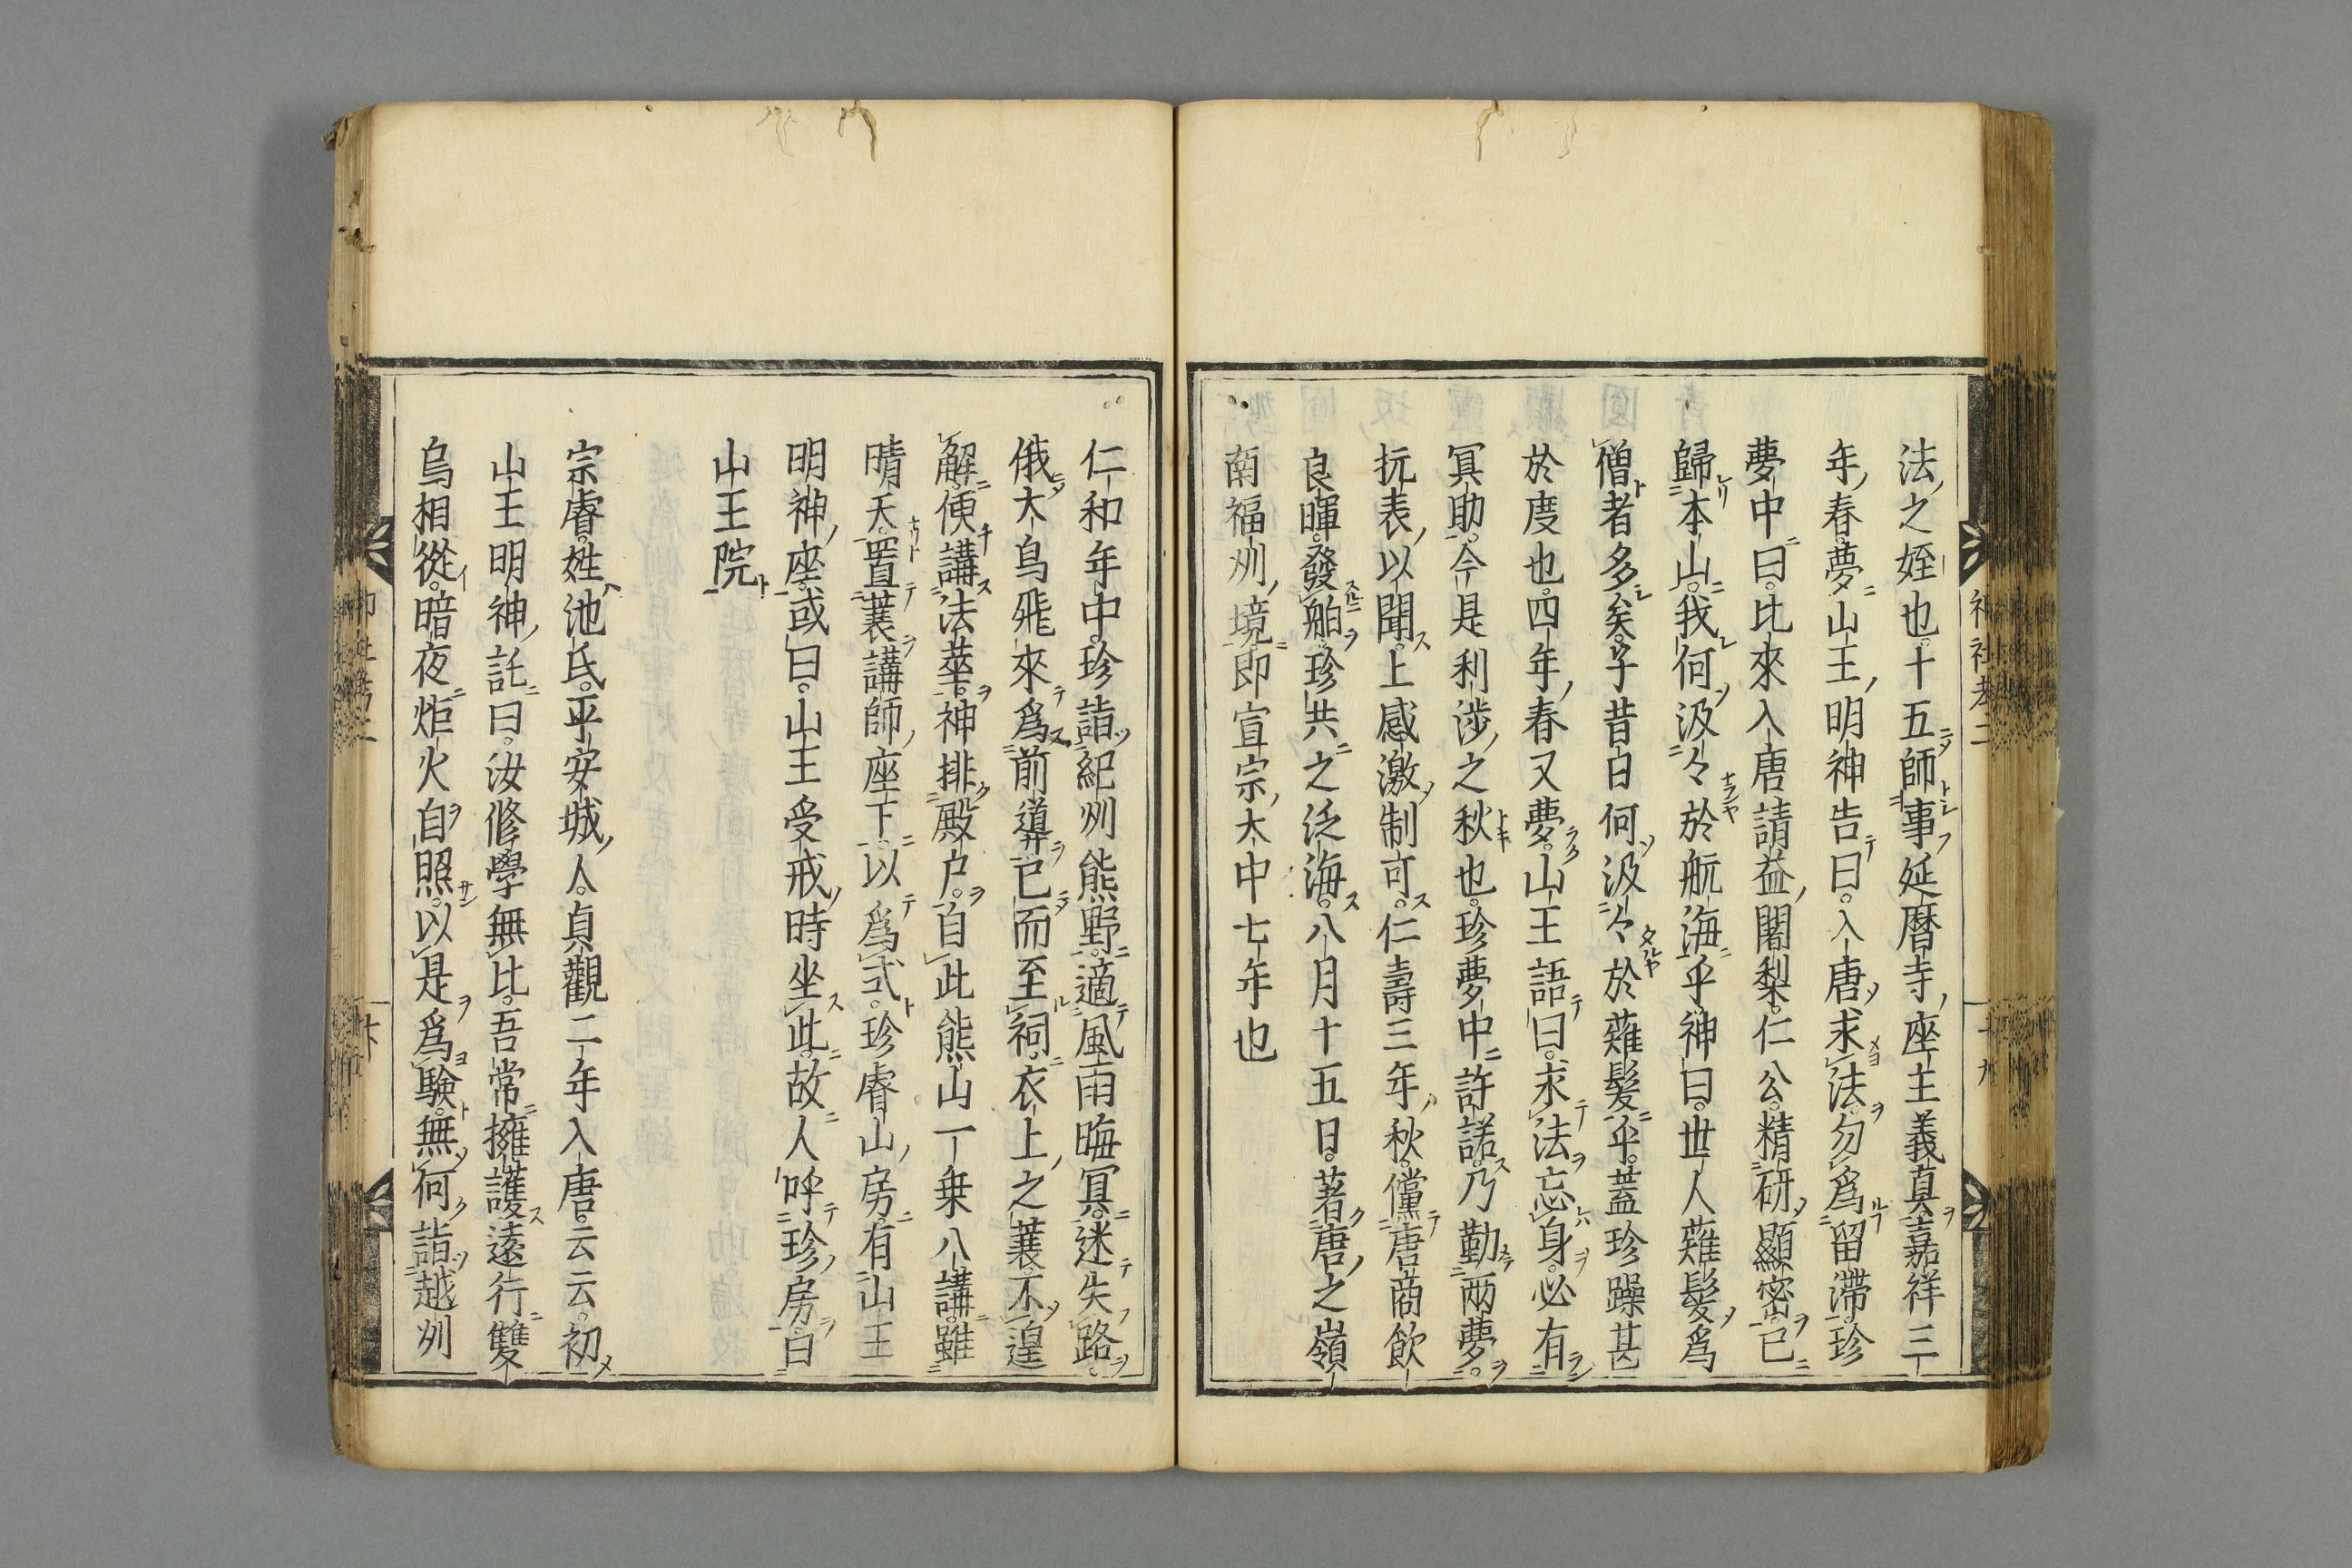 法之姪也。十五師事延暦寺座主義真嘉祥三
年春夢山王明神告曰。入唐求法。勿為留滯。珍
夢中曰。比來入唐請益闍梨。仁公。精研顯密。已
歸本山。我何汲々於航海乎。神曰。世人薙髮為
僧者多矣。子昔日何汲々於薙髮乎。蓋珍躁甚
於度也。四年春又夢。山王語曰。求法忘身。必有
冥助。今是利涉之秋也。珍夢中許諾。乃勤兩夢。
抗表以聞。上感激制可。仁壽三年秋。儻唐商飲
良暉。發舶。珍共之泛海。八月十五日。著唐之嶺
南福州境。即宣宗大中七年也
神社考二
二十九
仁和年中。珍詣紀州熊野。適風雨晦冥。迷失路。
俄大鳥飛來為前導。已而至祠。衣上之蓑。不遑
解。便講法華。神排殿户。自此熊山一乗八講。雖
晴天。置蓑講師座下。以為式。珍睿山房。有山王
明神座。或曰。山王受戒時坐此。故人呼珍房。曰
山王院
宗睿。姓池氏。平安城人。貞觀二年入唐。云云。初
山王明神託曰。汝修學無比。吾常擁護遠行雙
烏相從。暗夜炬火自照。以是為驗。無何詣越州